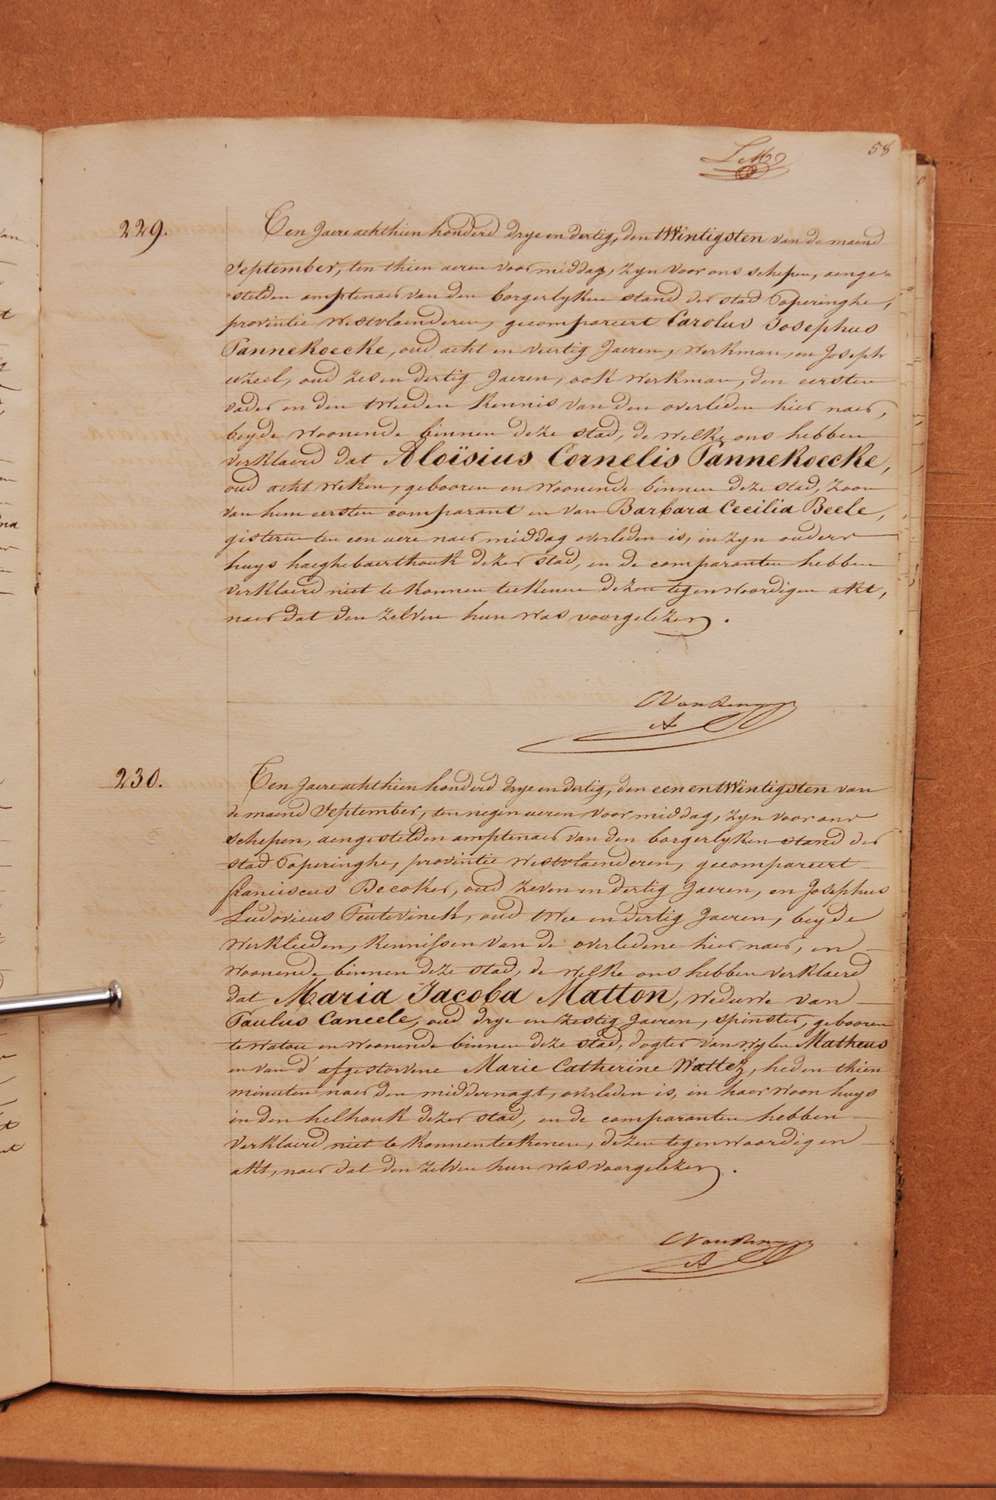 58
229.
Ten Jaere achthien honderd drye en dertig, den twintigsten van de maend
September, ten thien ueren voor middag, zyn voor ons schepen, aenge-
stelden amptenaer van den borgerlyken stand der stad Poperinghe,
provintie Westvlaenderen, gecompareert Carolus Josephus
Pannekoecke, oud acht en veertig Jaeren, werkman, en Joseph
oud zes en dertig Jaeren, ook werkman, den eersten
vader en den tweeden kennis van den overleden hier naer,
beyde woonende binnen deze stad, de welke ons hebben
verklaerd dat Aloïsius Cornelis Pannekoecke,
oud acht weken, gebooren en woonende binnen deze stad, zoon
van hem eersten comparant en van Barbara Cecilia Beele,
gisteren ten een uere naer middag overleden is, in zyn ouders
huys haeghebaerthouk dezer stad, en de comparanten hebben
verklaerd niet te konnen teekenen dezen tegenwoordigen akt,
naer dat den zelven hun was voorgelezen.
230.
Ten Jaere achthien honderd drye en dertig, den eenentwintigsten van
de maend September, ten negen ueren voor middag, zyn voor ons
schepen, aengestelden amptenaer van den borgerlyken stand der
stad Poperinghe, provintie Westvlaenderen, gecompareert
franciscus Decoker, oud zeven en dertig Jaeren, en Josephus
Ludovicus Peutevinck, oud twee en dertig Jaeren, beyde
werklieden, kennissen van de overledene hier naer, en
woonende binnen deze stad, de welke ons hebben verklaerd
dat Maria Jacoba Matton, weduwe van
Paulus Caneele, oud drye en zestig Jaeren, spinster, gebooren
te watou en woonende binnen deze stad, dogter van wylen Matheus
en van d'afgestorvene Marie Catherine Wattez, heden thien
minuten naer den middernagt, overleden is, in haer woon huys
in den helhouk dezer stad, en de comparanten hebben
verklaerd niet te konnen teekenen, dezen tegenwoordigen
akt, naer dat den zelven hun was voorgelezen.